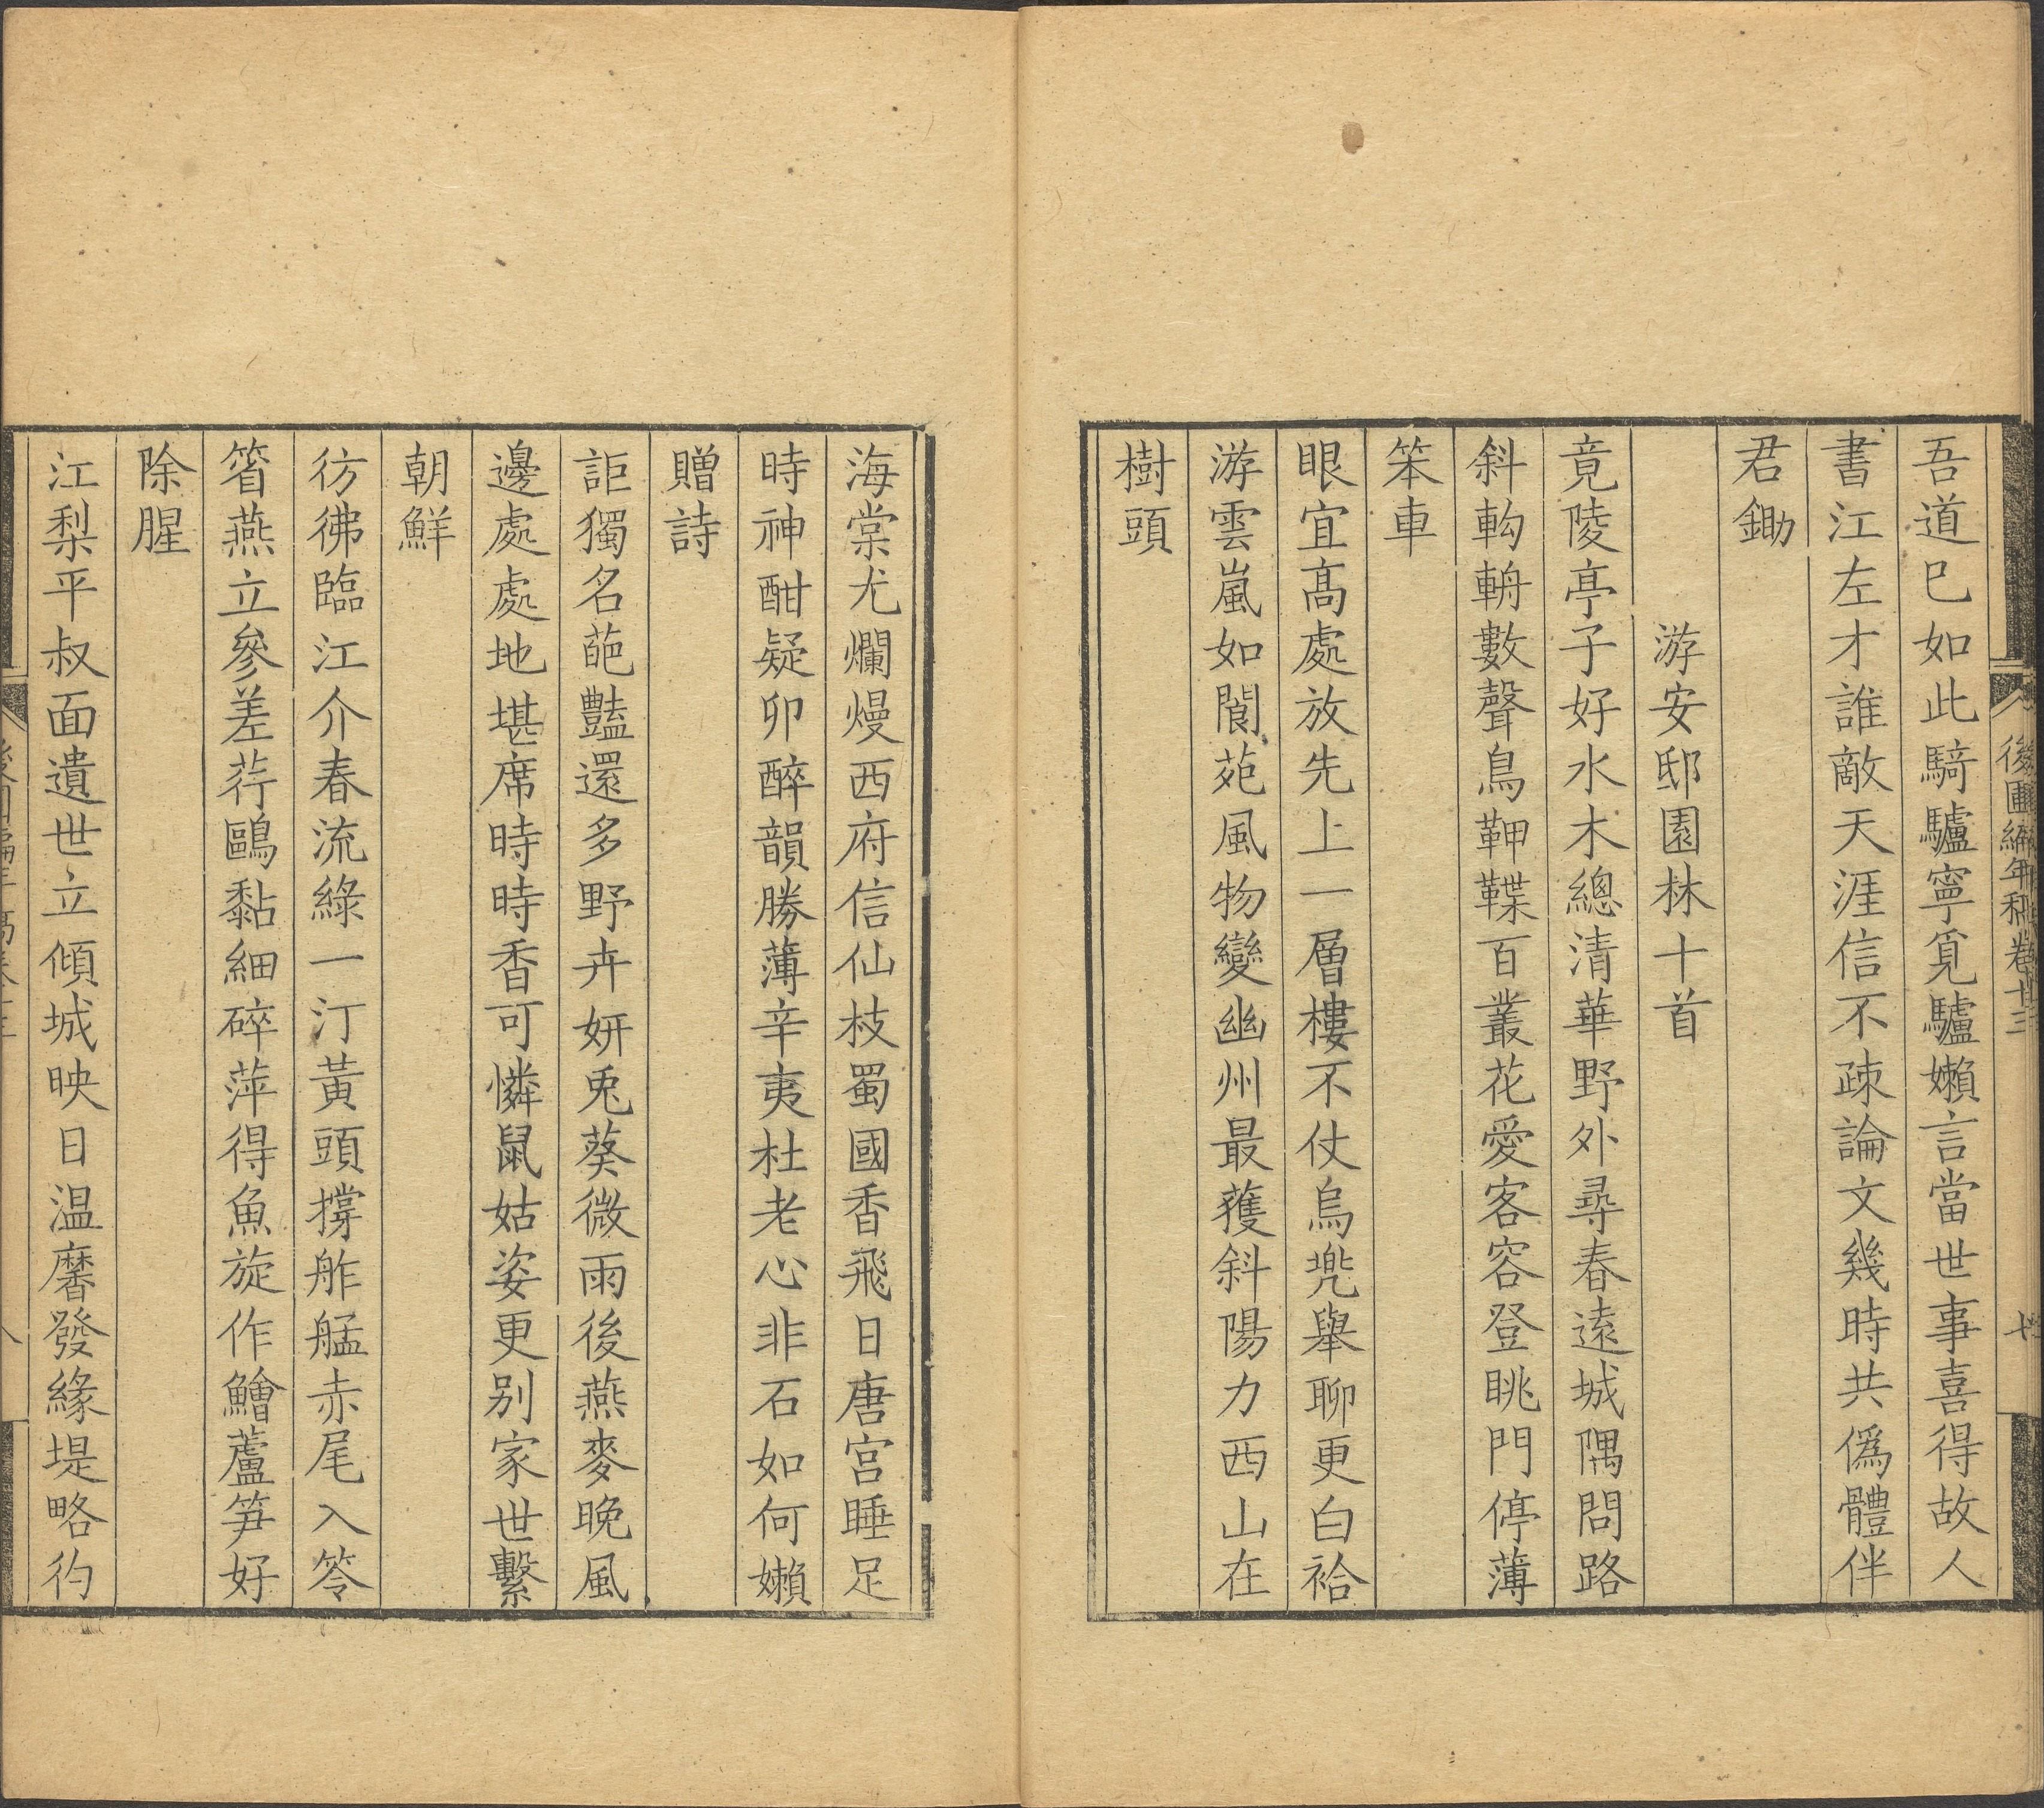 吾道已如此騎驢寧覓驢嬾言當世事喜得故人
書江左才誰敵天涯信不疎論文幾時共僞體伴
君鋤
游安邸園林十首
竟陵亭子好水木總清華野外尋春遠城隅問路
斜軥輈數聲鳥鞞鞢百叢花愛客容登眺門停薄
笨車
眼宜高處放先上一層樓不仗烏兠舉聊更白袷
游雲嵐如閬苑風物變幽州最蒦斜陽力西山在
樹頭
後圃編年稿卷十三
七
海棠尤爛熳西府信仙枝蜀國香飛日唐宮睡足
時神酣疑卯醉韻勝薄辛夷杜老心非石如何嬾
贈詩
詎獨名葩豔還多野卉妍兎葵微雨後燕麥晚風
邊處處地堪席時時香可憐鼠姑姿更别家世繫
朝鮮
彷彿臨江介春流綠一汀黃頭撐舴艋赤尾入笭
箵燕立參差荇鷗黏細碎萍得魚旋作鱠蘆笋好
除腥
江梨平叔面遺世立傾城映日温黁發緣堤略彴